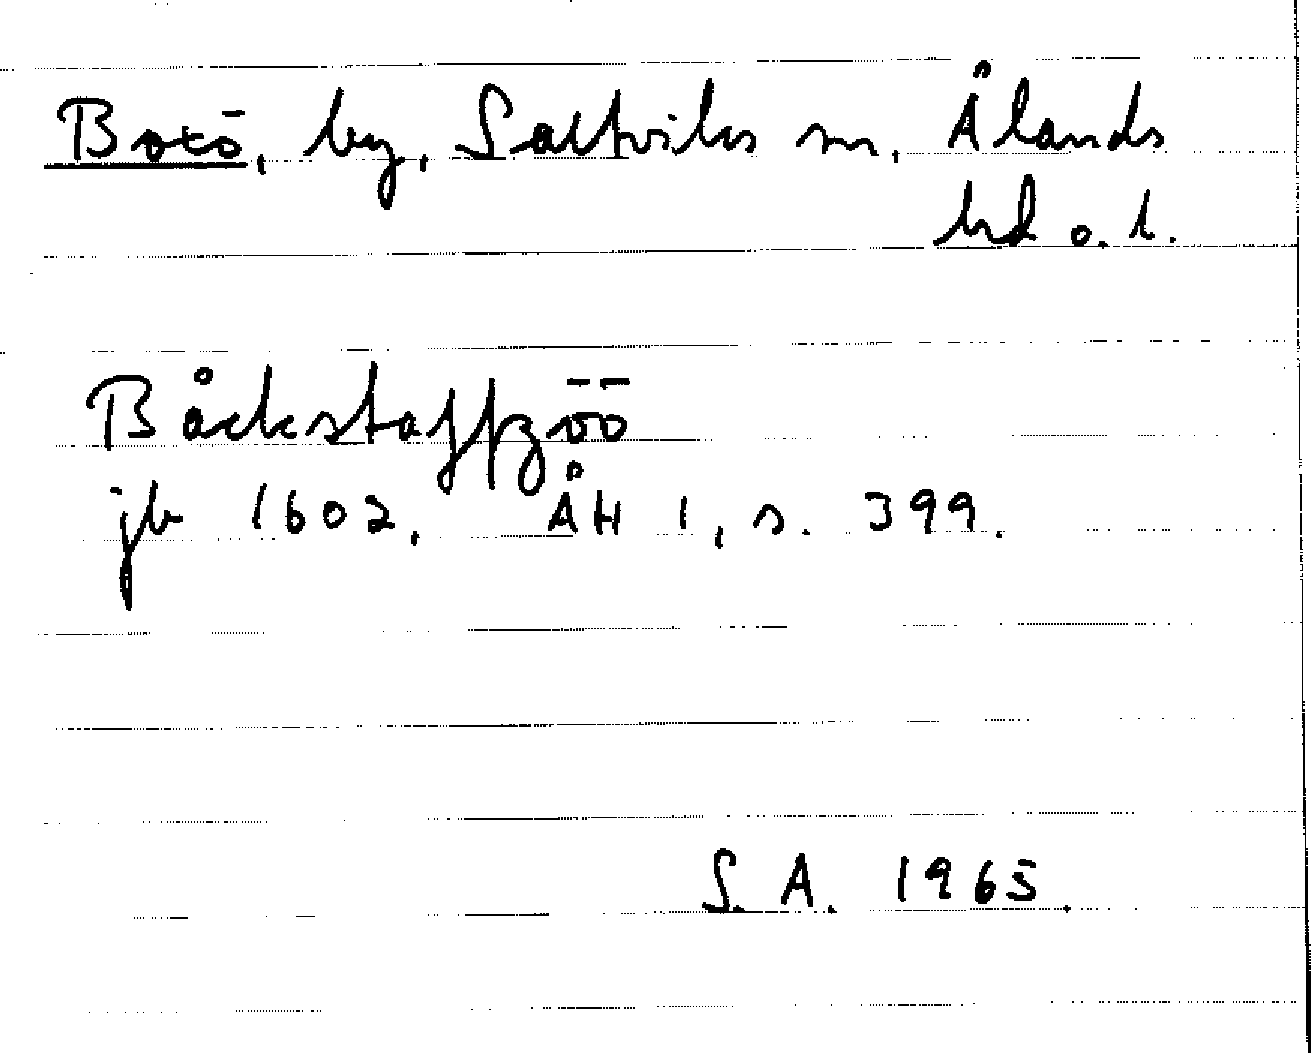 Bocö, by, Saltviks sn, Ålands
hd o. l.
Båckstaffzöö
jb 1602. ÅH 1, s. 399.
S. A. 1965.